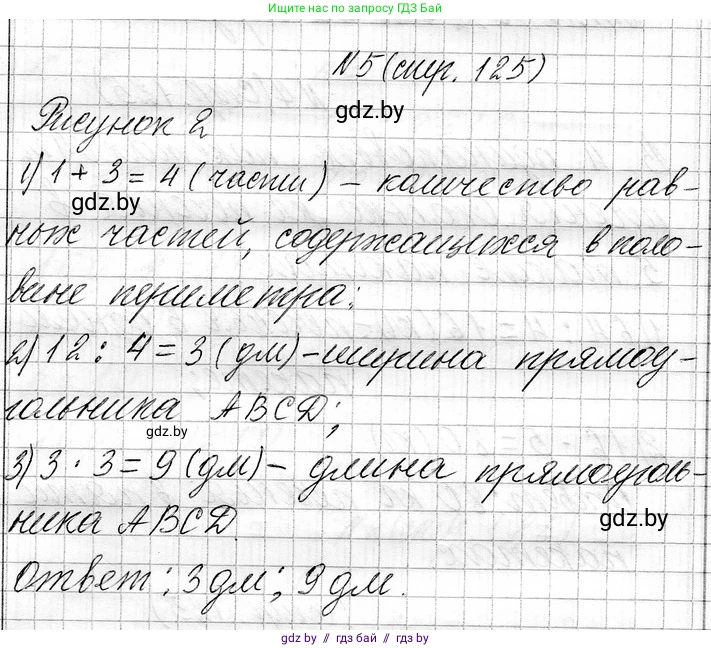 Ищите нас по запросу ГДЗ БАЙ
N5 (стр. 125)
gdz.by
Рисунок 2
1) 1 + 3 = 4 (части) – количество рав-
gdz.by
ных частей, содержащихся в поло-
вине периметра;
2) 12 : 4 = 3 (дм) – ширина прямоу-
гольника ABCD;
gdz.by
3) 3 · 3 = 9 (дм) – длина прямоуголь-
ника ABCD
gdz.by
Ответ: 3 дм; 9 дм.
gdz.by // гдз бай // gdz.by